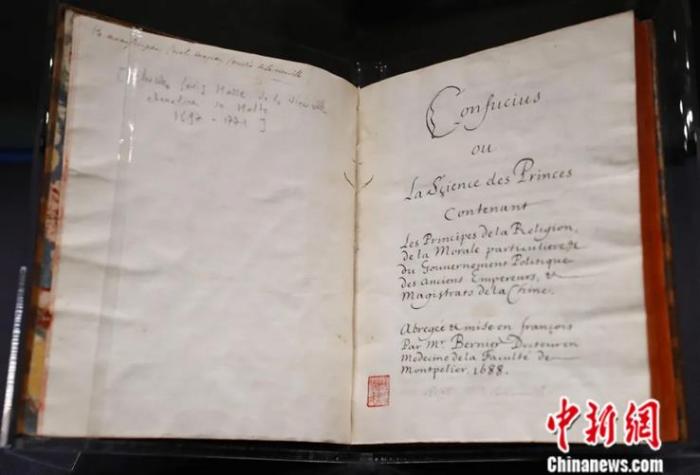 [
1697 - 1771 ]
Confucius
ou
La Sçience des Princes
Contenant
Les Principes de la Religion,
de la Morale particuliere, &
du Gouvernement Politique
des Anciens Empereurs, &
Magistrats de la Chine.
Abregée & mise en françois
Par Mr. Bernier Docteur en
Medecine de la Faculté de
Montpelier. 1688.
中新网
Chinanews.com